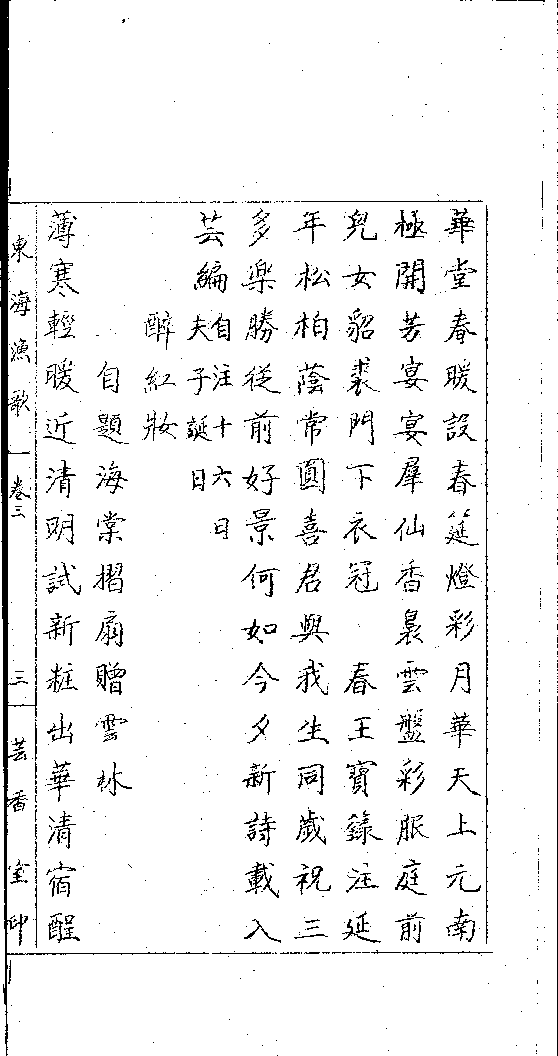 華堂春暖設春筵燈彩月華天上元南
極開芳宴宴羣仙香裊雲盤彩服庭前
兒女貂裘門下衣冠　春王寶籙注延
年松柏蔭常圓喜君與我生同歲祝三
多樂勝從前好景何如今夕新詩載入
芸編自注十六日夫子誕日
醉紅妝
自題海棠摺扇贈雲林
薄寒輕暖近清明試新粧出華清宿酲
東海漁歌　卷三　三　芸香室印